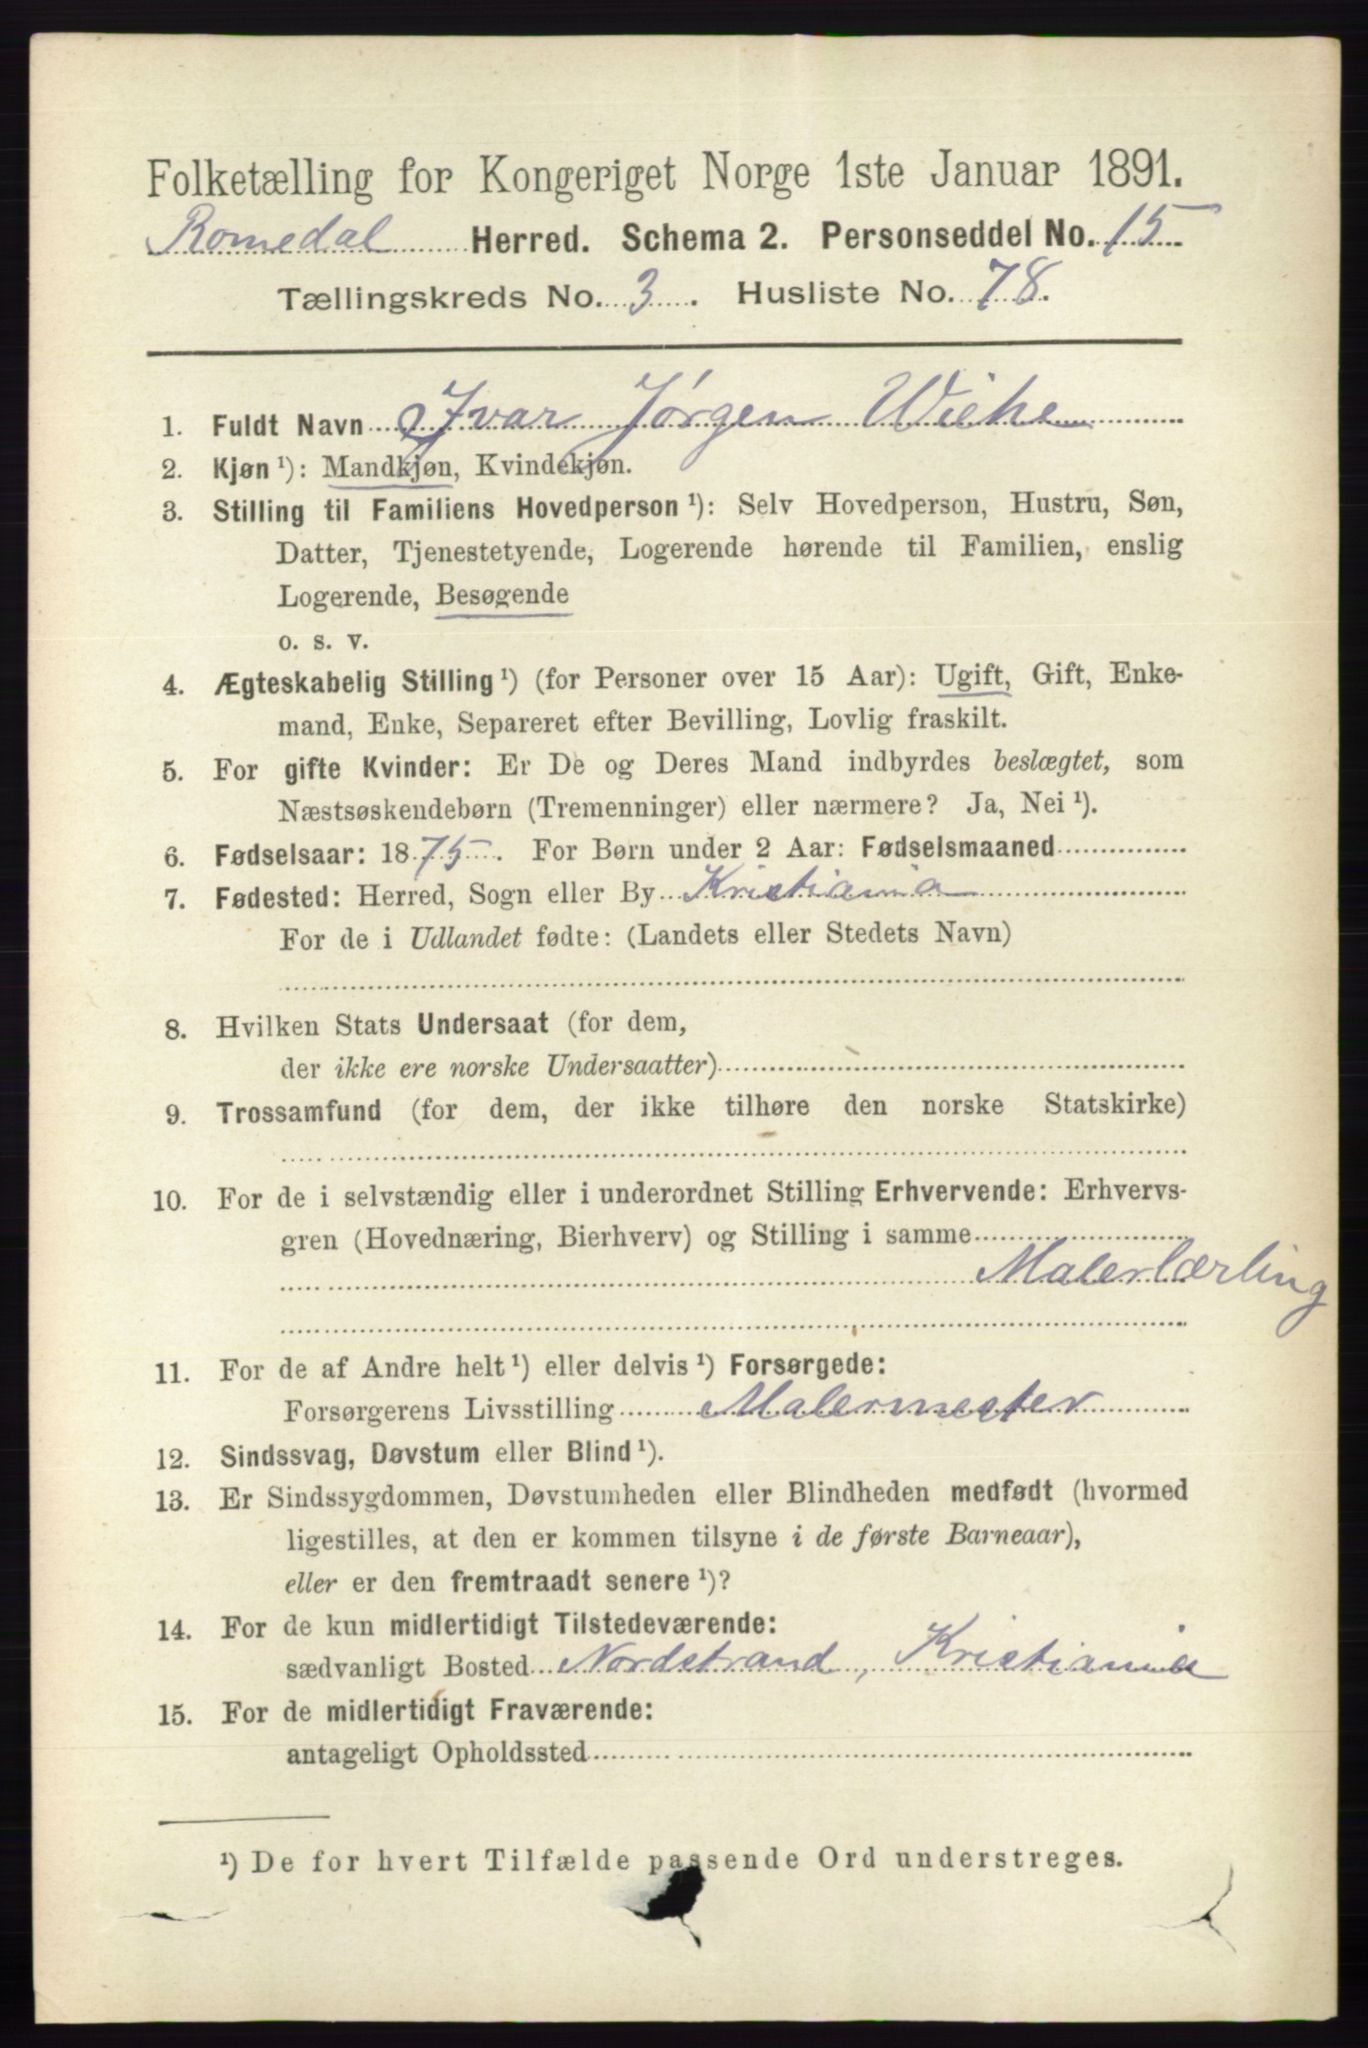 Folketælling for Kongeriget Norge 1ste Januar 1891.
Romedal Herred. Schema 2. Personseddel No. 15
Tællingskreds No. 3. Husliste No. 78.
1. Fuldt Navn Ivar Jørgen Wiehe
2. Kjøn ¹): Mandkjøn, Kvindekjøn.
3. Stilling til Familiens Hovedperson ¹): Selv Hovedperson, Hustru, Søn,
Datter, Tjenestetyende, Logerende hørende til Familien, enslig
Logerende, Besøgende
o. s. v.
4. Ægteskabelig Stilling ¹) (for Personer over 15 Aar): Ugift, Gift, Enke-
mand, Enke, Separeret efter Bevilling, Lovlig fraskilt.
5. For gifte Kvinder: Er De og Deres Mand indbyrdes beslægtet, som
Næstsøskendebørn (Tremenninger) eller nærmere? Ja, Nei ¹).
6. Fødselsaar: 1875. For Børn under 2 Aar: Fødselsmaaned
7. Fødested: Herred, Sogn eller By Kristiania
For de i Udlandet fødte: (Landets eller Stedets Navn)
8. Hvilken Stats Undersaat (for dem,
der ikke ere norske Undersaatter)
9. Trossamfund (for dem, der ikke tilhøre den norske Statskirke)
10. For de i selvstændig eller i underordnet Stilling Erhvervende: Erhvervs-
gren (Hovednæring, Bierhverv) og Stilling i samme
Malerlærling
11. For de af Andre helt ¹) eller delvis ¹) Forsørgede:
Forsørgerens Livsstilling Malermester
12. Sindssvag, Døvstum eller Blind ¹).
13. Er Sindssygdommen, Døvstumheden eller Blindheden medfødt (hvormed
ligestilles, at den er kommen tilsyne i de første Barneaar),
eller er den fremtraadt senere ¹)?
14. For de kun midlertidigt Tilstedeværende:
sædvanligt Bosted Nordstrand, Kristiania
15. For de midlertidigt Fraværende:
antageligt Opholdssted
¹) De for hvert Tilfælde passende Ord understreges.